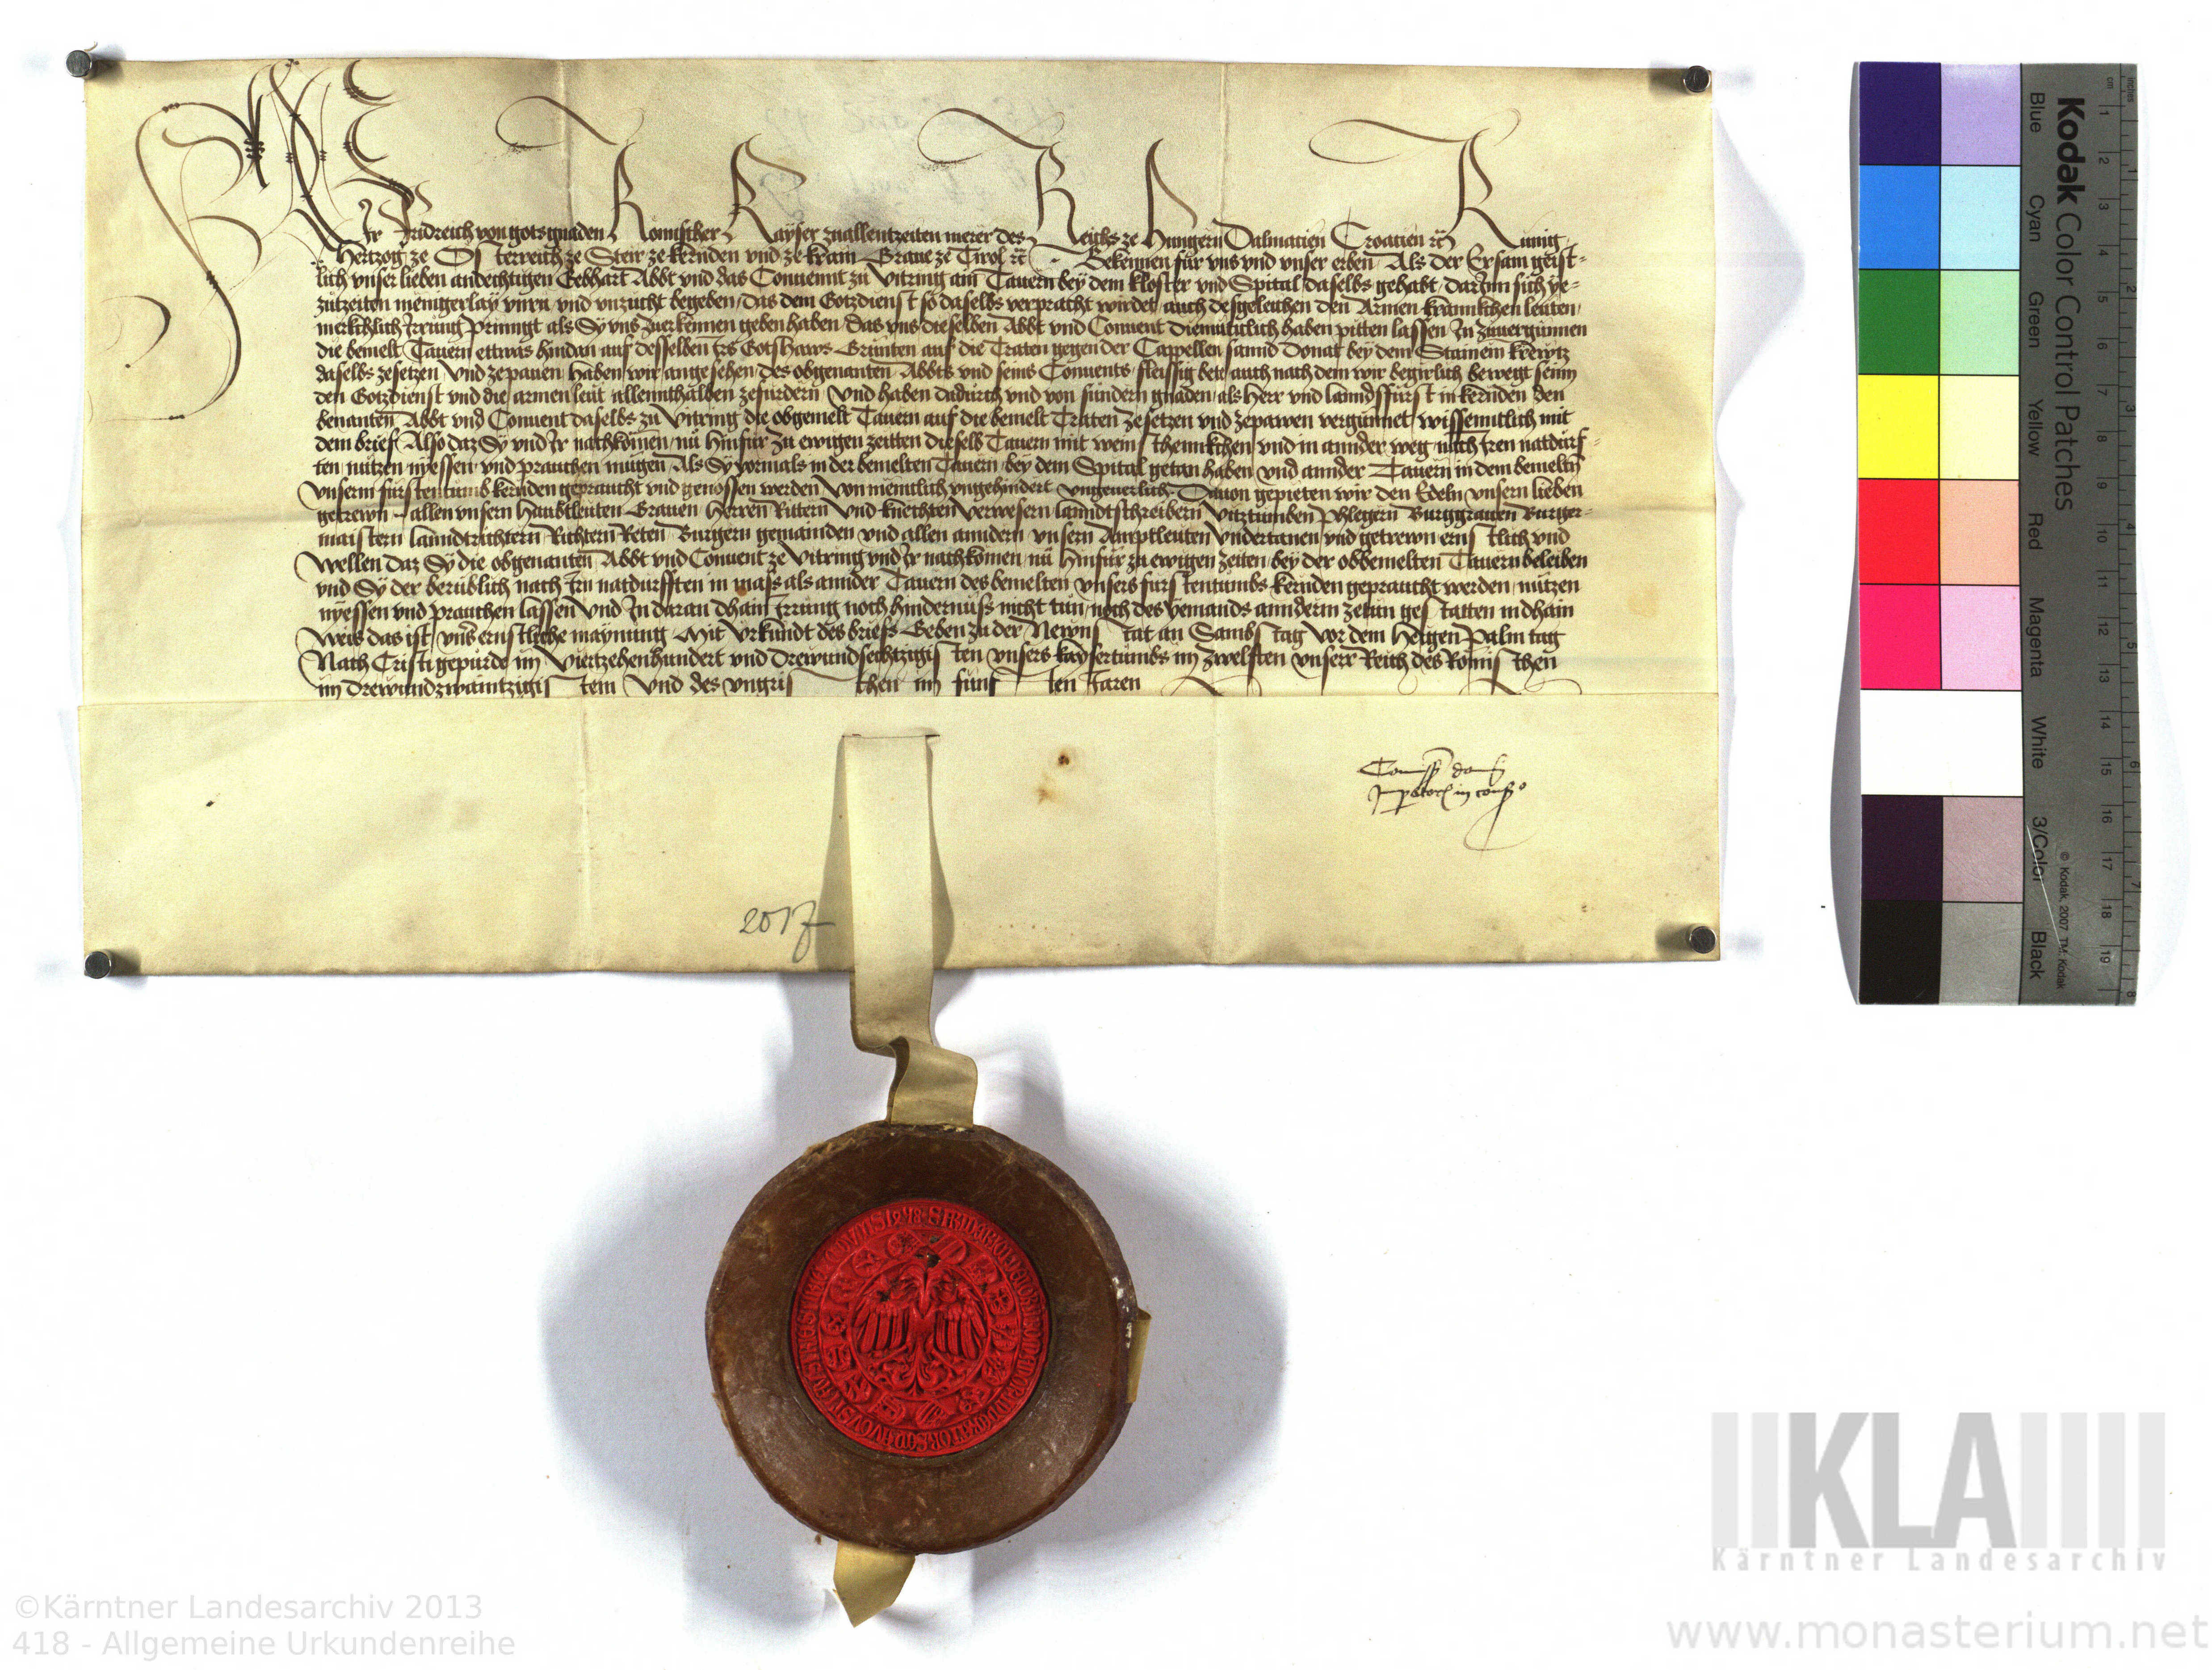 Wir Fridreich von gots gnaden Romischer Kayser zuallenntzeiten merer des Reichs ze Hungern Dalmatien Croatien rc̄ Kunig
Hertzog ze Osterreich ze Steir ze kernden vnd ze krain Graue ze Tirol rc̄ Bekennen für vns vnd vnser erben Als der Ersam geist-
lich vnser lieben andechtigen Gebhart Abbt vnd das Conuennt zu Vitring ain Tauern bey dem kloster vnd Spital daselbs gehabt darInn sich ye-
zuzeiten menigerlay vnru vnd vnzucht begeben das dem Gotzdienst so daselbs verpracht wirdet auch desgeleichen den Armen krannkchen leuten
merkchlich Irrung prinngt als Sy vns zuerkennen geben haben das vns dieselben Abbt vnd Conuent diemuticlich haben pitten lassen In zuuergünnen
die bemelt Tauern ettwas hindan auf desselben Irs Gotshaws Grünten auf die Traten gegen der Cappellen sannd Donat bey dem Stainein krewtz
daselbs zesetzen vnd zepauen haben wir angesehen des obgenanten Abbts vnd seins Conuents fleissig bete auch nach dem wir begirlich bewegt sein
den Gotzdienst vnd die armen leut allennthalben zefürdern vnd haben dadurch vnd von sundern gnaden als Herr vnd lanndsfürst in kernden den
benanten Abbt vnd Conuent daselbs zu Vitring die obgemelt Tauern auf die bemelt Traten ze setzen vnd zepawen vergünnet wissenntlich mit
dem brief Also daz Sy vnd Ir nachkomen nu hinfür zu ewigen zeitten dieselb Tauern mit wein schennkchen vnd in annder weg nach Iren notdurf-
ten nutzen nyessen vnd prauchen mügen Als Sy vormals in der bemelten Tauern bey dem Spital getan haben vnd annder Tauern in dem bemeltn
vnserm fürstentumb kernden gepraucht vnd genossen werden von menniclich vngehindert vngeuerlich Dauon gepieten wir den Edeln vnsern lieben
getrewn allen vnsern Haubtleuten Grauen Herren Rittern vnd knechten verwesern lanndtschreibern vitztumben phlegern Burggrauen Burger-
maistern lanndtrichtern Richtern Reten Burgern gemainden vnd allen anndern vnsern Ambtleuten vndertanen vnd getrewn ernstlich vnd
wellen daz Sy die obgenanten Abbt vnd Conuent ze Vitring vnd Ir nachkomen nu hinfür zu ewigen zeiten bey der obbemelten Tauern beleiben
vnd Sy der berublich nach Irn notdurfften in mass als annder Tauern des bemelten vnsers fürstentumbs kernden gepraucht werden nützen
nyessen vnd prauchen lassen vnd In daran dhain Irrung noch hindernüss nicht tun noch des yemands annderm zetun gestatten in dhain
weis das ist vnser ernstliche maynung Mit vrkundt des briefs Geben zu der Newnstat an Sambstag vor dem Heiligen Palmtag
Nach Cristi gepürde im Viertzehenhundert vnd drewundsechtzigisten vnsers kaysertumbs im zwelften vnserr Reich des Römischen
im drewundzwaintzigistem vnd des vngrischen im fünften Jaren
2017
Kodak Color Control Patches
Blue Cyan Green Yellow Red Magenta White 3/Color Black
© Kodak, 2007 TM: Kodak
cm 1 2 3 4 5 6 7 8 9 10 11 12 13 14 15 16 17 18 19
inches 1 2 3 4 5 6 7 8
KLA
Kärntner Landesarchiv
©Kärntner Landesarchiv 2013
418 - Allgemeine Urkundenreihe
www.monasterium.net